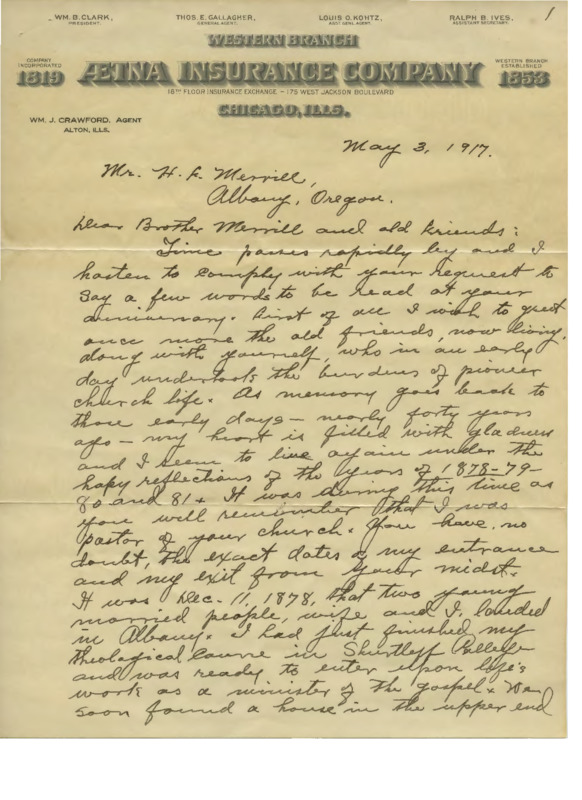 1
WM. B. CLARK, PRESIDENT. THOS. E. GALLAGHER, GENERAL AGENT. LOUIS O. KOHTZ, ASST GENL AGENT. RALPH B. IVES, ASSISTANT SECRETARY.
WESTERN BRANCH
COMPANY INCORPORATED 1819 ÆTNA INSURANCE COMPANY WESTERN BRANCH ESTABLISHED 1853
16TH FLOOR INSURANCE EXCHANGE - 175 WEST JACKSON BOULEVARD
CHICAGO, ILLS.
WM. J. CRAWFORD, AGENT
ALTON, ILLS.
May 3, 1917.
Mr. H. F. Merrill,
Albany, Oregon.
Dear Brother Merrill and old friends:
Time passes rapidly by and I
hasten to comply with your request to
say a few words to be read at your
anniversary. First of all I wish to greet
once more the old friends, now living,
along with yourself, who in an early
day undertook the burdens of pioneer
church life. As memory goes back to
those early days - nearly forty years
ago - my heart is filled with gladness
and I seem to live again under the
hapy reflections of the years of 1878-79-
80 and 81+ It was during this time as
you will remember that I was
pastor of your church. You have, no
doubt, the exact dates of my entrance
and my exit from your midst.
It was Dec. 11, 1878, that two young
married people, wife and I, landed
in Albany. I had just finished my
theological course in Shurtleff College
and was ready to enter upon life's
work as a minister of the gospel. We
soon found a house in the upper end